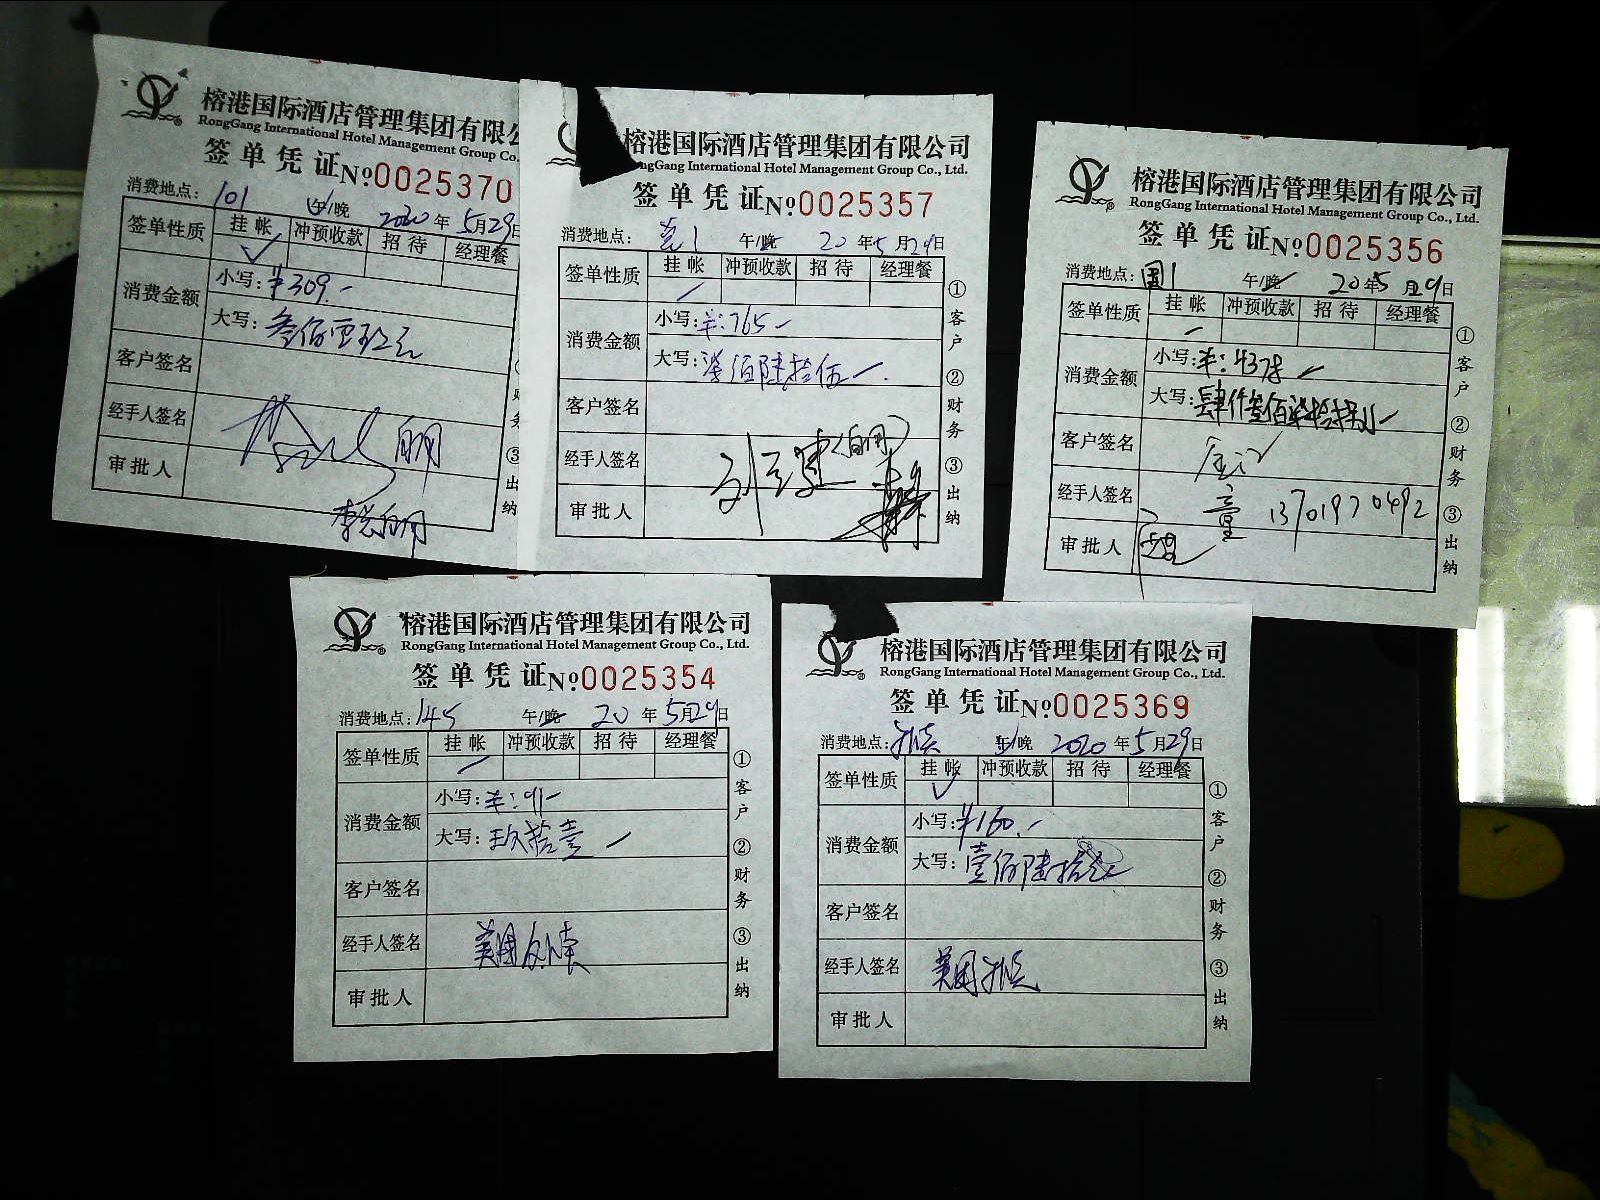 榕港国际酒店管理集团有限公
RongGang International Hotel Management Group Co.
签单凭证 №0025370
消费地点: 101 午/晚 2020年5月29日
签单性质 挂帐 冲预收款 招待 经理餐
消费金额 小写: ¥309.-
大写: 叁佰零玖元
客户签名
经手人签名
审批人
③出纳
榕港国际酒店管理集团有限公司
ngGang International Hotel Management Group Co., Ltd.
签单凭证 №0025357
消费地点: 午/晚 20年5月29日
签单性质 挂帐 冲预收款 招待 经理餐
消费金额 小写: ¥:765-
大写: 柒佰陆拾伍
客户签名
经手人签名
审批人
①客户 ②财务 ③出纳
榕港国际酒店管理集团有限公司
RongGang International Hotel Management Group Co., Ltd.
签单凭证 №0025356
消费地点: 国1 午/晚 20年5月29日
签单性质 挂帐 冲预收款 招待 经理餐
消费金额 小写: ¥:4378
大写: 肆仟叁佰柒拾捌
客户签名
经手人签名 13701970492
审批人
①客户 ②财务 ③出纳
榕港国际酒店管理集团有限公司
RongGang International Hotel Management Group Co., Ltd.
签单凭证 №0025354
消费地点: 145 午/晚 20年5月29日
签单性质 挂帐 冲预收款 招待 经理餐
消费金额 小写: ¥:91-
大写: 玖拾壹
客户签名
经手人签名 美团
审批人
①客户 ②财务 ③出纳
榕港国际酒店管理集团有限公司
RongGang International Hotel Management Group Co., Ltd.
签单凭证 №0025369
消费地点: 午/晚 2020年5月29日
签单性质 挂帐 冲预收款 招待 经理餐
消费金额 小写: ¥160.-
大写: 壹佰陆拾元
客户签名
经手人签名 美团
审批人
①客户 ②财务 ③出纳